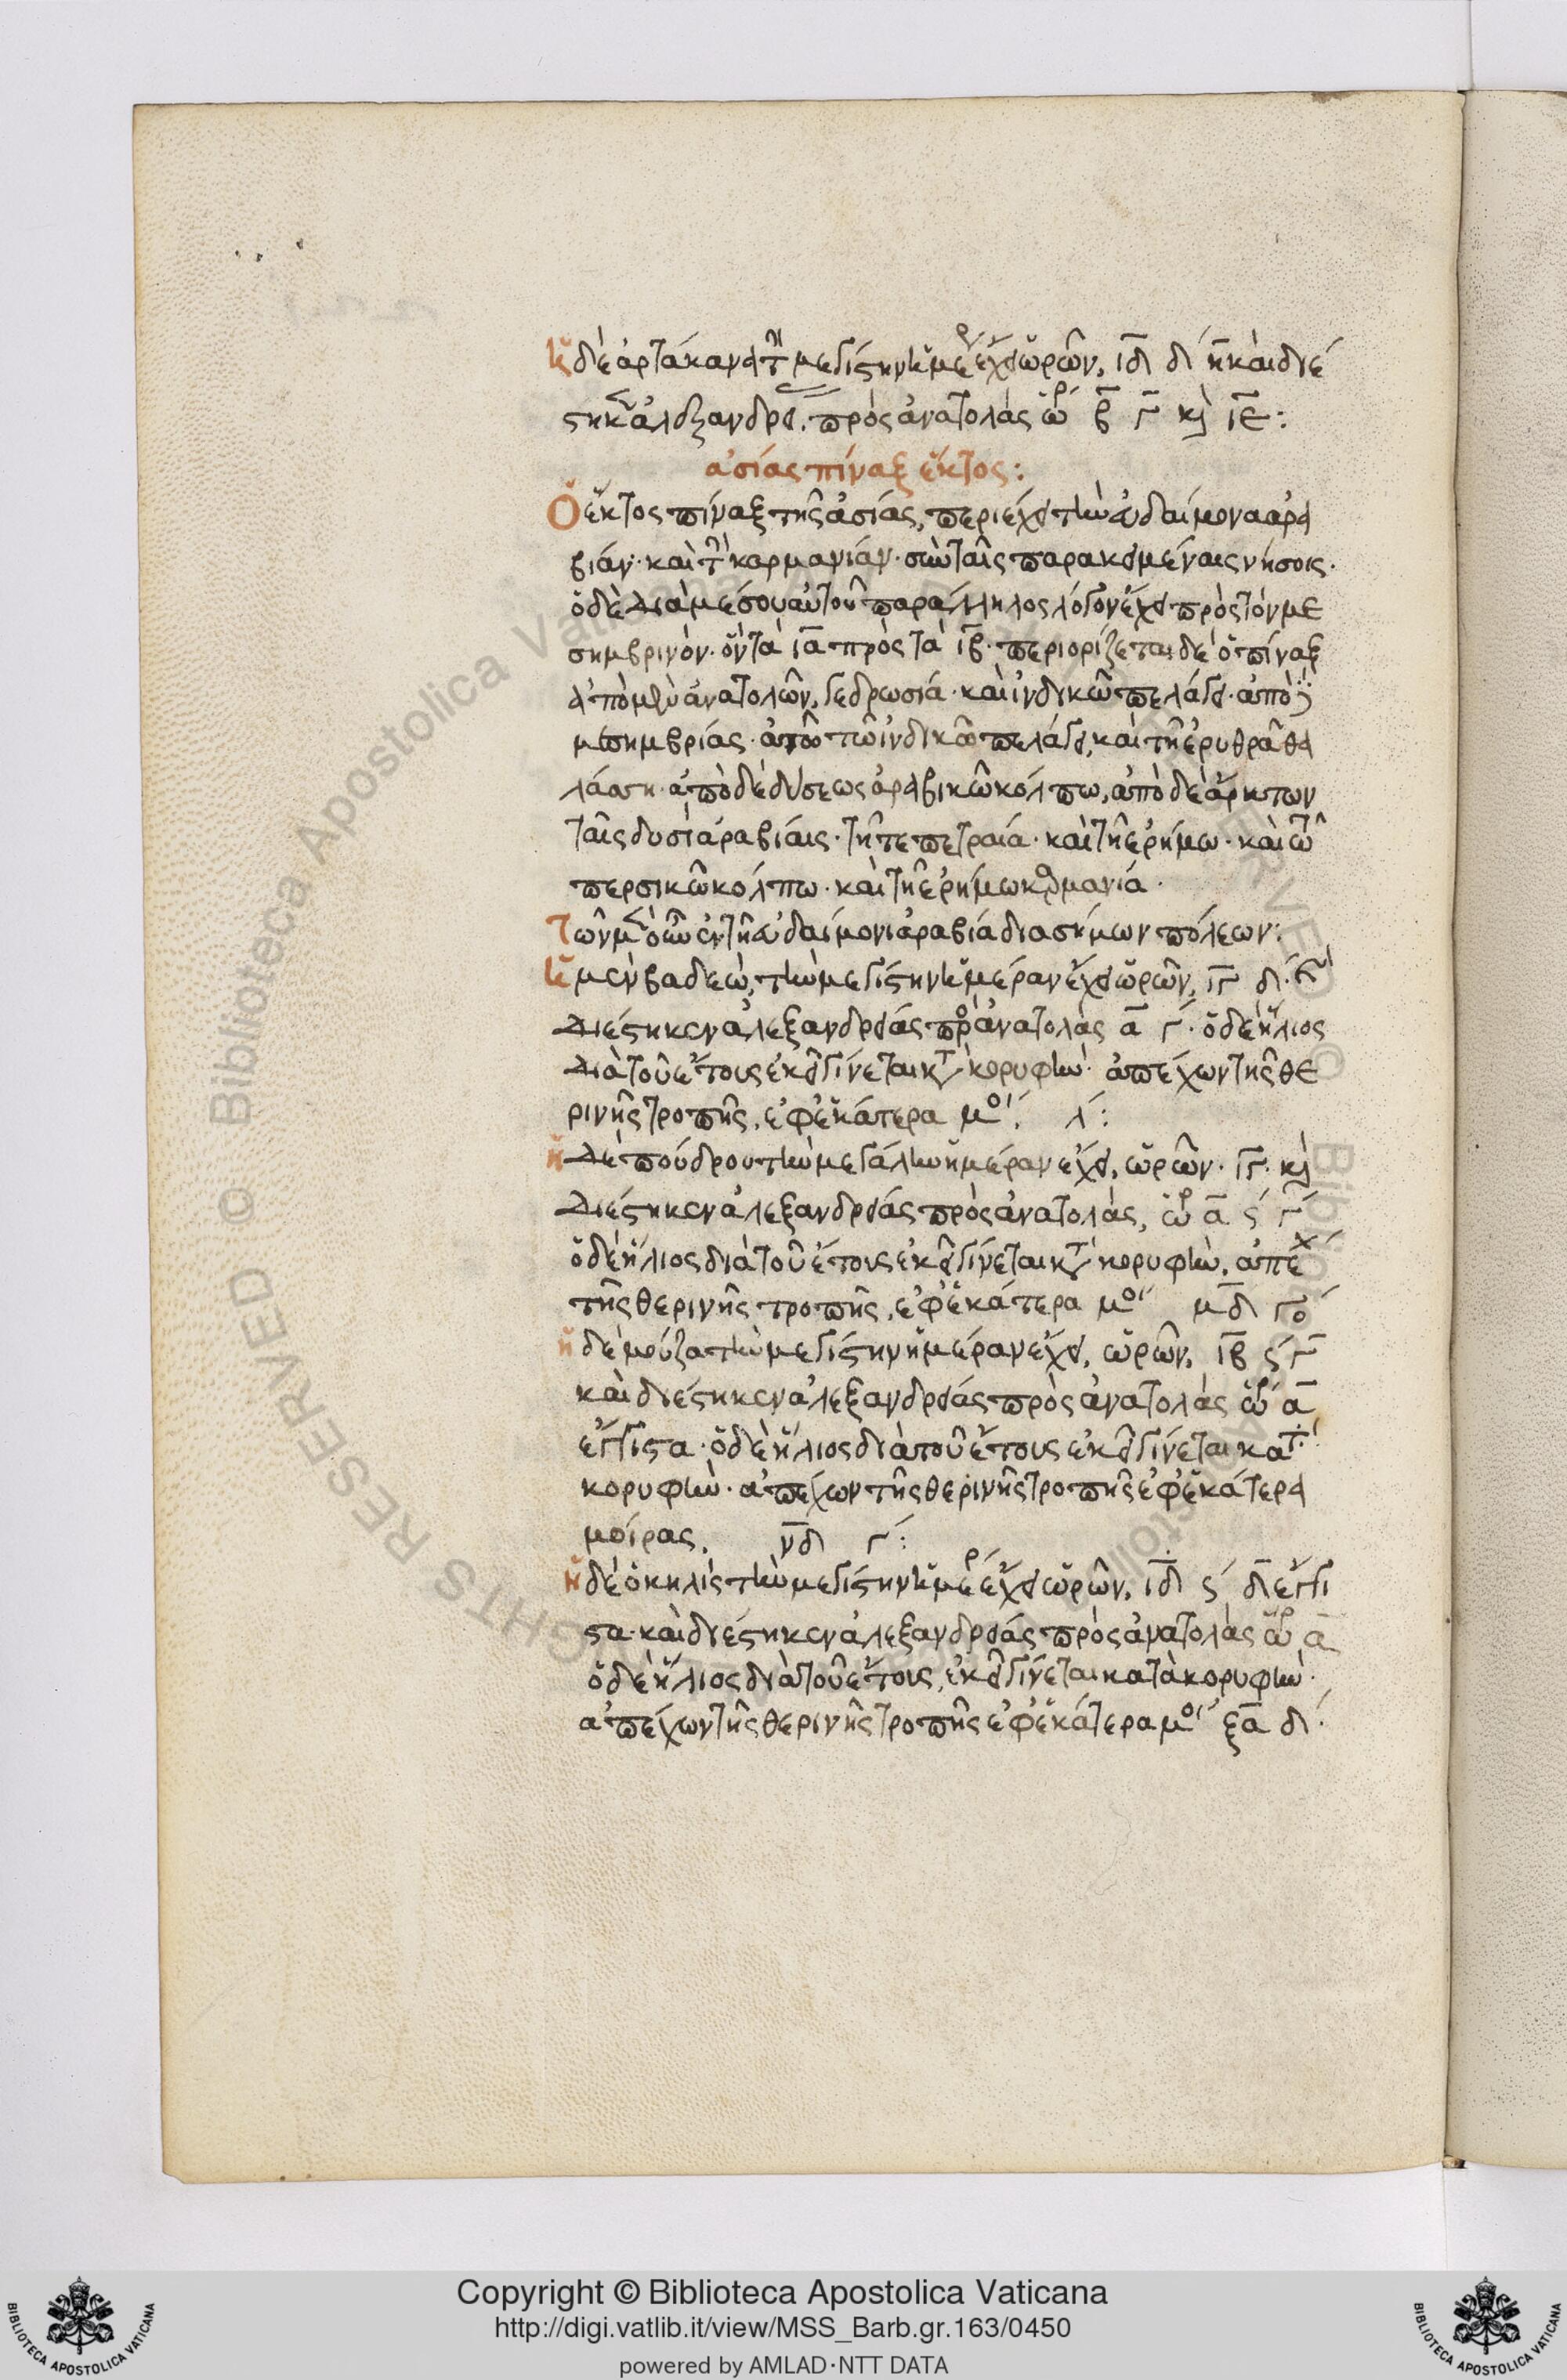 ἡ δὲ ἀρτάκανα τὴν μεγίστην ἡμέρ ἔχει ὡρῶν, ιδ δ´ η καὶ διέ
στηκεν ἀλεξανδρεί. πρὸς ἀνατολὰς ὥρ β γ κ ιε:
ἀσίας πίναξ ἕκτος:
Ὁ ἕκτος πίναξ τῆς ἀσίας, περιέχει τὴν εὐδαίμονα ἀρα
βιάν· καὶ τὴν καρμανιάν· σὺν ταῖς παρακειμέναις νήσοις·
ὁ δὲ διὰ μέσου αὐτοῦ παράλληλος λόγον ἔχει πρὸς τὸν με
σημβρινὸν· ὃν τὰ ια πρὸς τὰ ιβ· περιορίζεται δὲ ὁ πίναξ
ἀπὸ μὲν ἀνατολῶν, γεδρωσιά· καὶ ἰνδικῶ πελάγει· ἀπὸ δὲ
μεσημβρίας· τῶ ἰνδικῶ πελάγει, καὶ τῆ ἐρυθρᾶ θα
λάσση· ἀπὸ δὲ δύσεως ἀραβικῶ κόλπω, ἀπὸ δὲ ἄρκτων
ταῖς δυσὶ ἀραβίαις· τῆ τε πετραία· καὶ τῆ ἐρήμω· καὶ τῶ
περσικῶ κόλπω· καὶ τῆ ἐρήμω καρμανία·
Τῶν μὲν οὖν ἐν τῆ εὐδαίμονι ἀραβία διασήμων πόλεων:
ἡ μὲν βαδεὼ, τὴν μεγίστην ἡμέραν ἔχει ὡρῶν, ιγ δ´· καὶ
διέστηκεν ἀλεξανδρείας πρὸς ἀνατολὰς α γ´· ὁ δὲ ἥλιος
διὰ τοῦ ἔτους ἐκεῖ γίνεται κατὰ κορυφὴν· ἀπέχων τῆς θε
ρινῆς τροπῆς, ἐφ' ἑκάτερα μοί. λ´:
ἡ δὲ πούδρου τὴν μεγάλην ἡμέραν ἔχει, ὡρῶν· ιγ· κ
διέστηκεν ἀλεξανδρείας πρὸς ἀνατολὰς, ὥρ α ς´ γ´
ὁ δὲ ἥλιος διὰ τοῦ ἔτους ἐκεῖ γίνεται κατὰ κορυφὴν, ἀπέχ
τῆς θερινῆς τροπῆς, ἐφ' ἑκάτερα μοί μδ γο´
ἡ δὲ μούζα τὴν μεγίστην ἡμέραν ἔχει, ὡρῶν, ιβ ς´ γ
καὶ διέστηκεν ἀλεξανδρείας πρὸς ἀνατολὰς ὥρ α
ἔγγιστα· ὁ δὲ ἥλιος διὰ τοῦ ἔτους ἐκεῖ γίνεται κατὰ
κορυφὴν· ἀπέχων τῆς θερινῆς τροπῆς ἐφ' ἑκάτερα
μοίρας, νδ γ´:
ἡ δὲ ὀκηλὶς τὴν μεγίστην ἡμέρ ἔχει ὡρῶν, ιδ ς´ δ ἔγγι
στα· καὶ διέστηκεν ἀλεξανδρείας πρὸς ἀνατολὰς ὥρ α
ὁ δὲ ἥλιος διὰ τοῦ ἔτους, ἐκεῖ γίνεται κατὰ κορυφὴν·
ἀπέχων τῆς θερινῆς τροπῆς ἐφ' ἑκάτερα μοί ξα δ´·
Copyright © Biblioteca Apostolica Vaticana
http://digi.vatlib.it/view/MSS_Barb.gr.163/0450
powered by AMLAD·NTT DATA